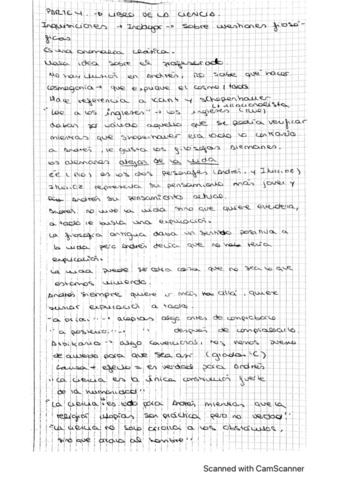 PARTE 4. → EL ARBOL DE LA CIENCIA.
Inquisiciones → Indagar → sobre cuestiones filosó-
ficas
Es una
Mala idea sobre el profesorado
No hay ilusión en Andrés, no sabe que hacer
cosmogonía → que explique el cosmos / todo
Hace referencia a Kant y Schopenhauer
"Lee a los ingleses" → los ingleses
daban por válido aquello que se podía verificar
mientras que Shopenhauer era todo lo contrario
a Andrés, le gusta los filósofos alemanes.
los alemanes alejas de la vida
los dos personajes (Andrés y Iturrioz)
Iturrioz representa su pensamiento más joven y
Andrés su pensamiento actual.
Andrés no vive la vida sino que quiere entenderla,
a todo le busca una explicación.
La filosofía antigua daba un sentido positivo a
la vida pero Andrés decía que no tenía
explicación.
La vida puede ser otra cosa que no sea lo que
estamos viviendo.
Andrés siempre quiere ir más "allá", quiere
buscar explicación a todo.
"a priori"... → aceptas algo antes de comprobarlo
"a posteriori"... " después de comprobarlo
Arbitrario → algo convencional, nos hemos puesto
de acuerdo para que sea así (grados °C)
Causa + efecto = es verdad para Andrés
"La ciencia es la única construcción fuerte
de la humanidad"
"La ciencia" es todo para Andrés mientras que la
religión utopías son práctica pero no verdad"
"La ciencia no solo arrolla a los obstáculos,
sino que arrolla al hombre"
Scanned with CamScanner